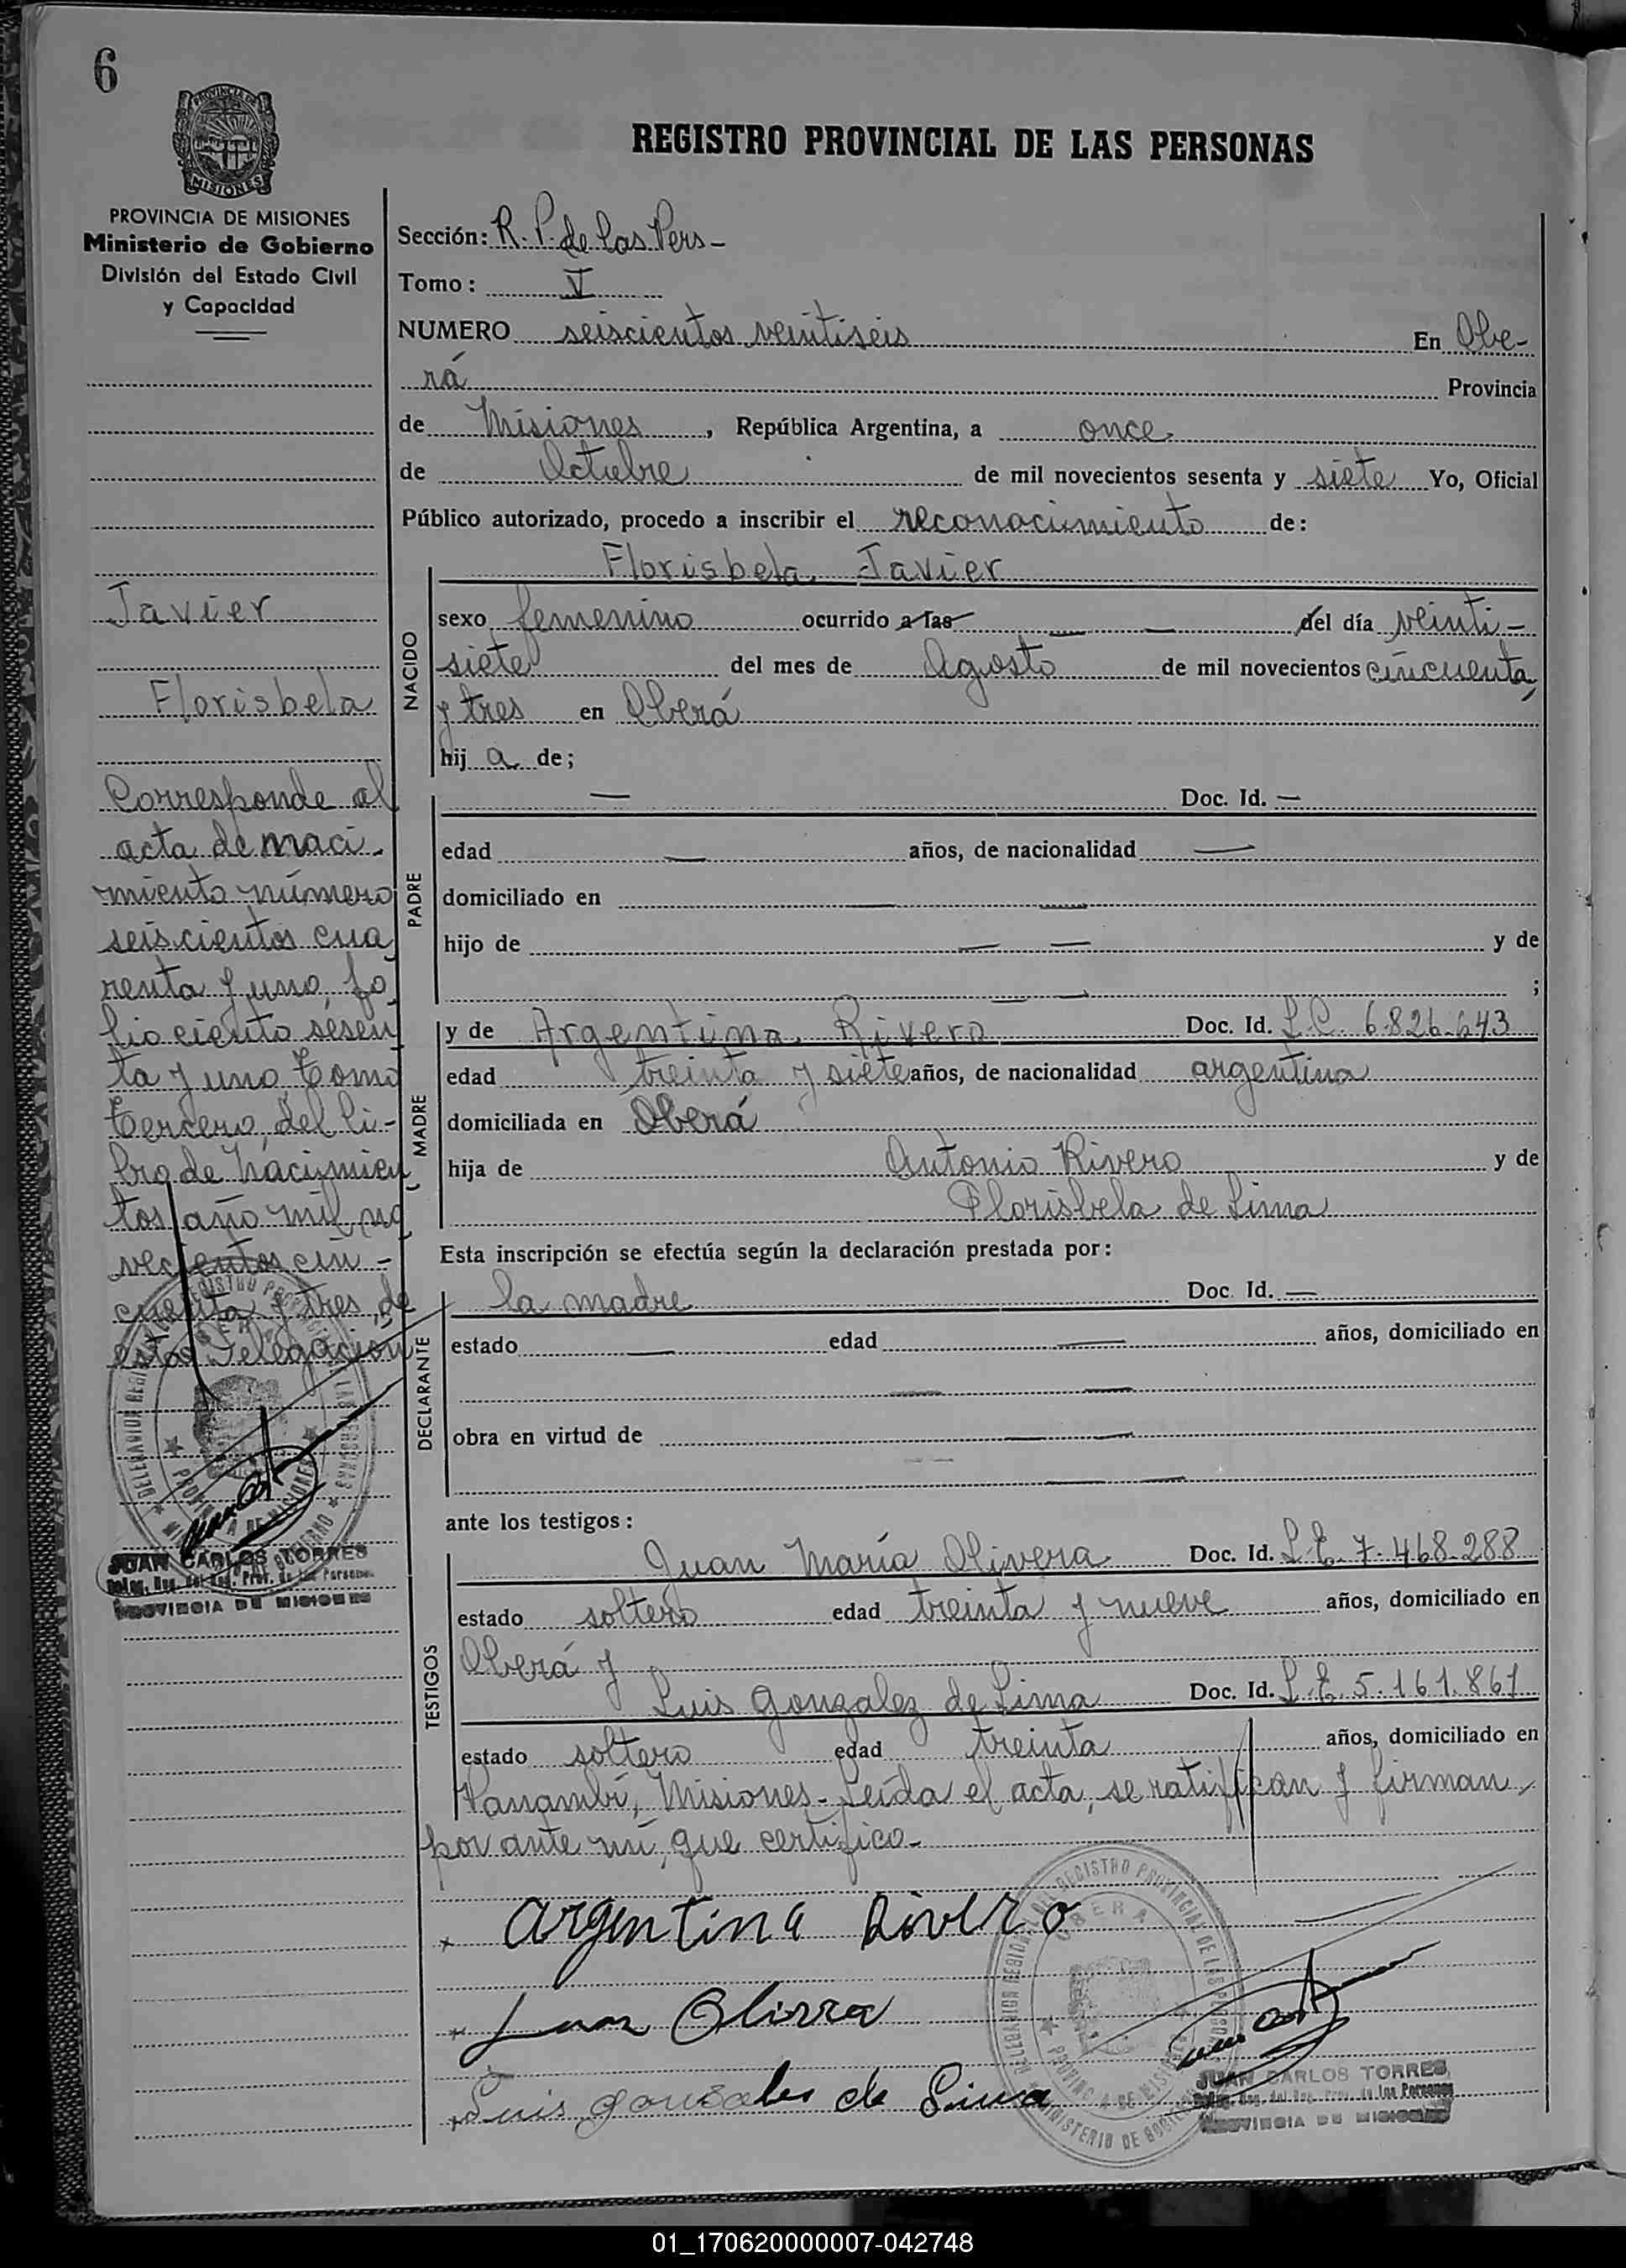 6
PROVINCIA DE
MISIONES
PROVINCIA DE MISIONES
Ministerio de Gobierno
División del Estado Civil
y Capacidad
REGISTRO PROVINCIAL DE LAS PERSONAS
Sección: R. P. de las Pers-
Tomo: V
NUMERO seiscientos veintiseis En Obe-
rá Provincia
de Misiones, República Argentina, a once
de Octubre de mil novecientos sesenta y siete Yo, Oficial
Público autorizado, procedo a inscribir el reconocimiento de:
NACIDO
Florisbela Javier
sexo femenino ocurrido a las — — del día veinti-
siete del mes de Agosto de mil novecientos cincuenta
y tres en Oberá
hij a de;
PADRE
— Doc. Id. —
edad — años, de nacionalidad —
domiciliado en — —
hijo de — — y de
— — ;
MADRE
y de Argentina Rivero Doc. Id. L.C. 6.826.643
edad treinta y siete años, de nacionalidad argentina
domiciliada en Oberá
hija de Antonio Rivero y de
Florisbela de Lima
Esta inscripción se efectúa según la declaración prestada por:
DECLARANTE
la madre Doc. Id. —
estado — edad — años, domiciliado en
— —
obra en virtud de — —
— —
ante los testigos:
TESTIGOS
Juan María Olivera Doc. Id. L.E. 7.468.288
estado soltero edad treinta y nueve años, domiciliado en
Oberá y
Luis Gonzalez de Lima Doc. Id. L.E. 5.161.861
estado soltero edad treinta años, domiciliado en
Panambí, Misiones- Leída el acta, se ratifican y firman,
por ante mí, que certifico-
Argentina Rivero
Luis gonzales de Lima
JUAN CARLOS TORRES
PROVINCIA DE MISIONES
Javier
Florisbela
Corresponde al
acta de naci-
miento número
seiscientos cua
renta y uno, fo
lio ciento sesen
ta y uno tomo
tercero, del li-
bro de nacimien
tos año mil no
vecientos cin-
cuenta y tres, de
esta Delegación
JUAN CARLOS TORRES
PROVINCIA DE MISIONES
01_170620000007-042748